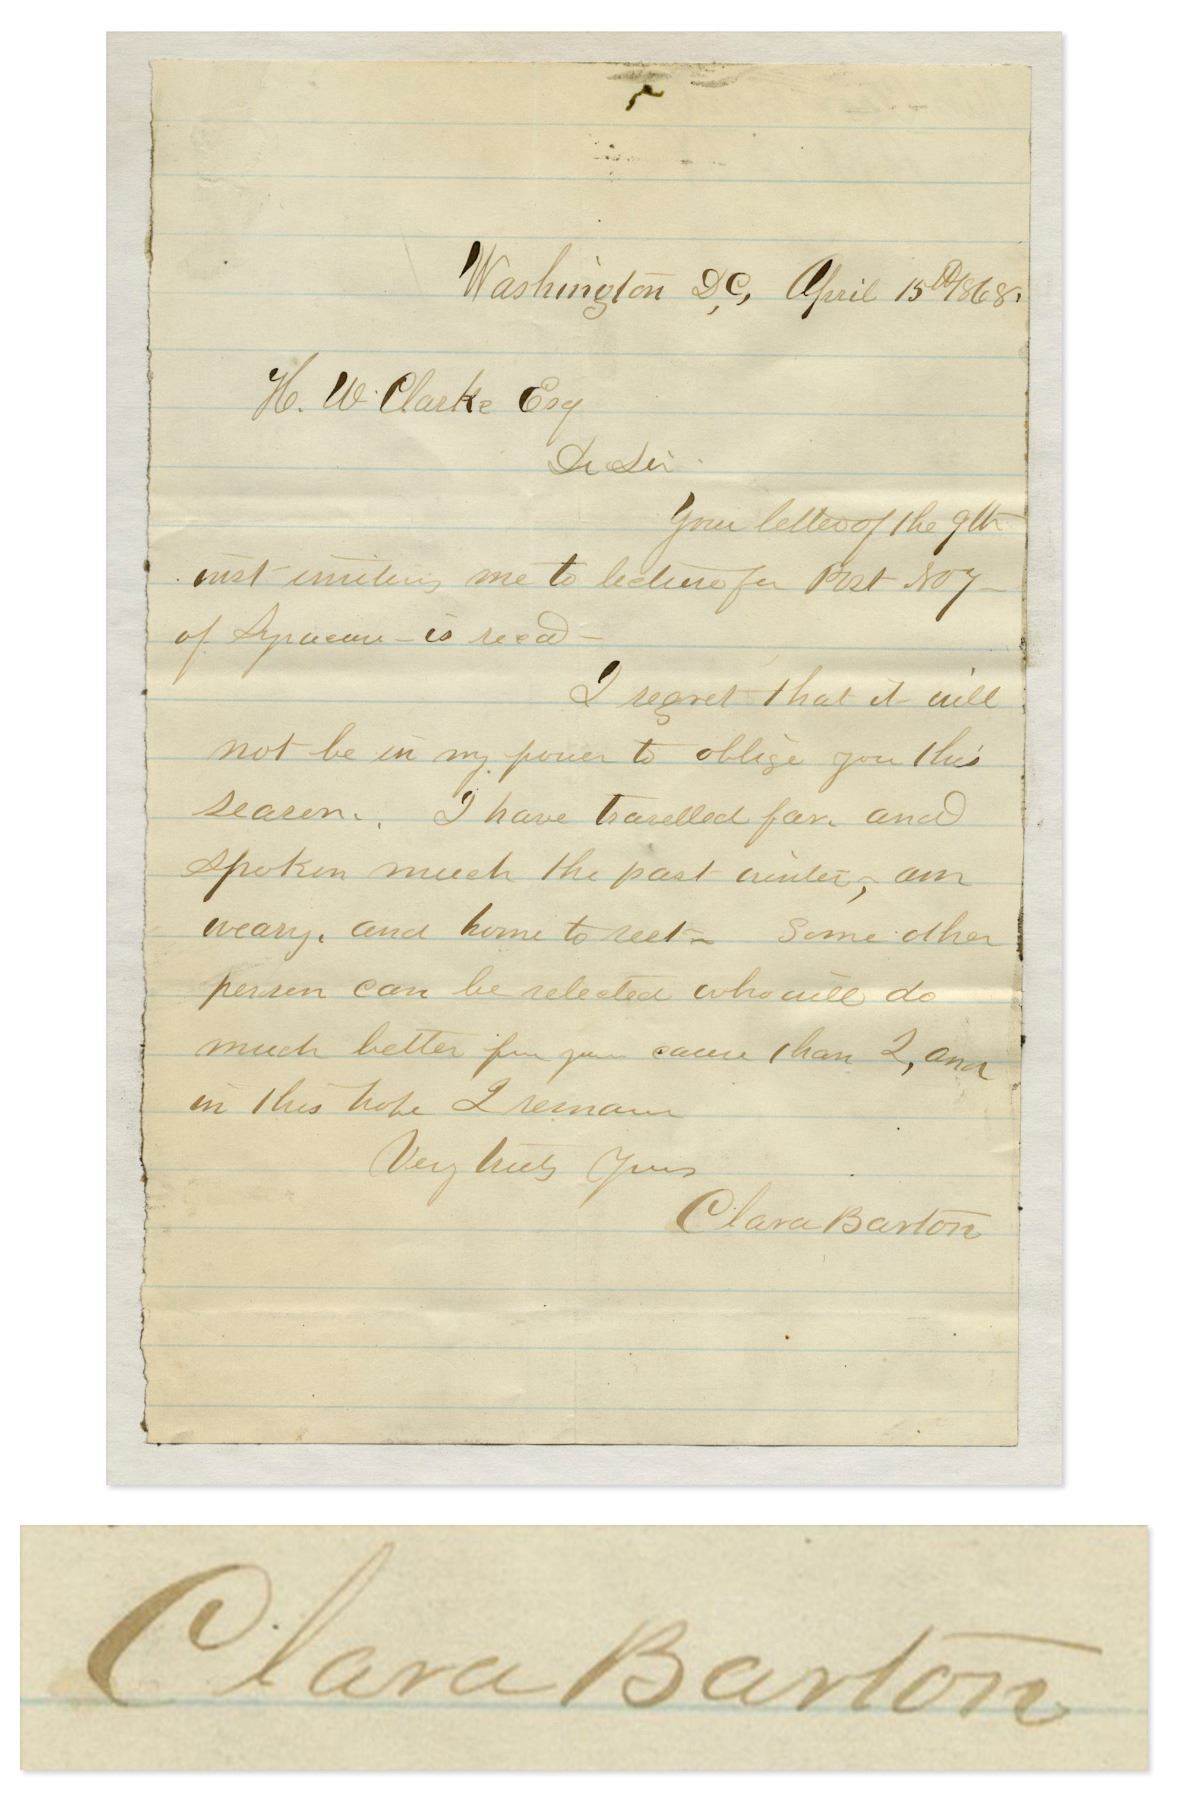 Washington D,C, April 15th 1868.
H. W. Clarke Esq
Dr Sir
Your letter of the 9th
inst inviting me to lecture for Post No 7 –
of Syracuse – is recd –
I regret that it will
not be in my power to oblige you this
season. I have travelled far and
spoken much the past winter, am
weary, and home to rest – Some other
person can be selected who will do
much better for your cause than I, and
in this hope I remain
Very truly Yours
Clara Barton
Clara Barton